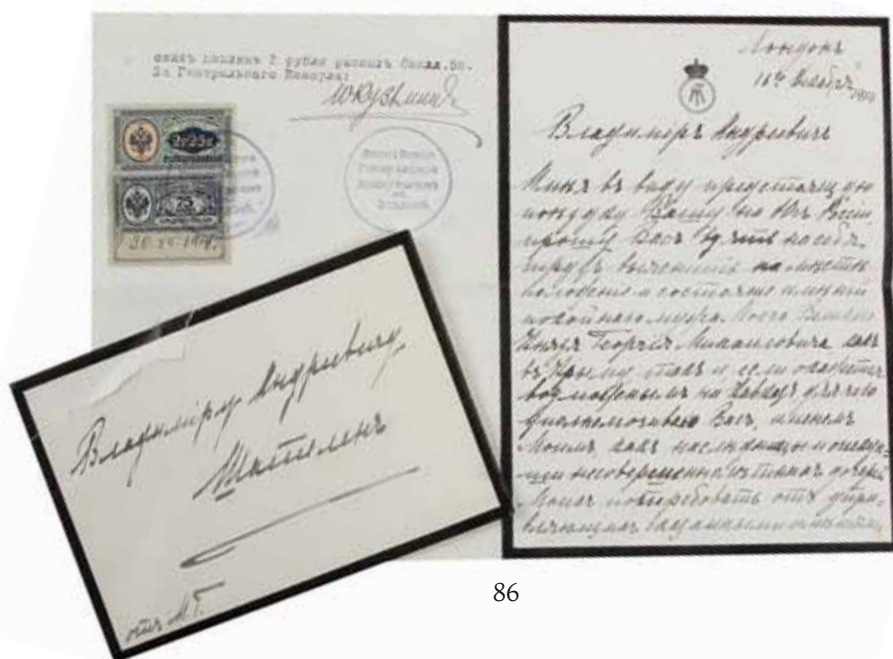 За Генеральнаго Консула:
75
Лондонъ
1919
Владиміръ Андреевичъ
Имѣя въ виду предстоящую
поѣздку Вашу на Югъ Россіи
прошу Васъ взять на себя
трудъ выяснить на мѣстѣ
положеніе и состояніе имѣній
покойнаго мужа Моего Великаго
Князя Георгія Михаиловича какъ
въ Крыму такъ и если окажется
возможнымъ на Кавказѣ для чего
уполномочиваю Васъ, именемъ
Моимъ, какъ наслѣдницы и опекун-
ши несовершеннолѣтнихъ дочерей
Моихъ потребовать отъ управ-
ляющихъ имѣніями
Владиміру Андреевичу
Шателенъ
отъ М.Г.
86